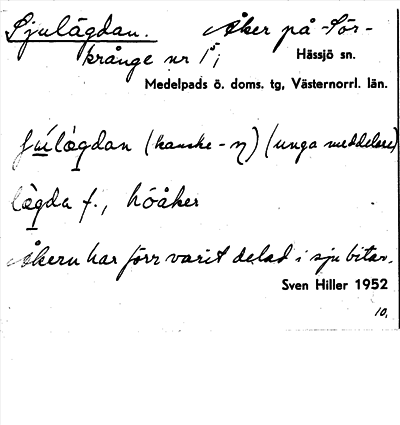 Sjulägdan. Åker på Sör-
krånge nr 1⁵;
Hässjö sn.
Medelpads ö. doms. tg, Västernorrl. län.
(kanske -η) (unga meddelare)
lägda f., höåker
Åkern har förr varit delad i sju bitar.
Sven Hiller 1952
10.